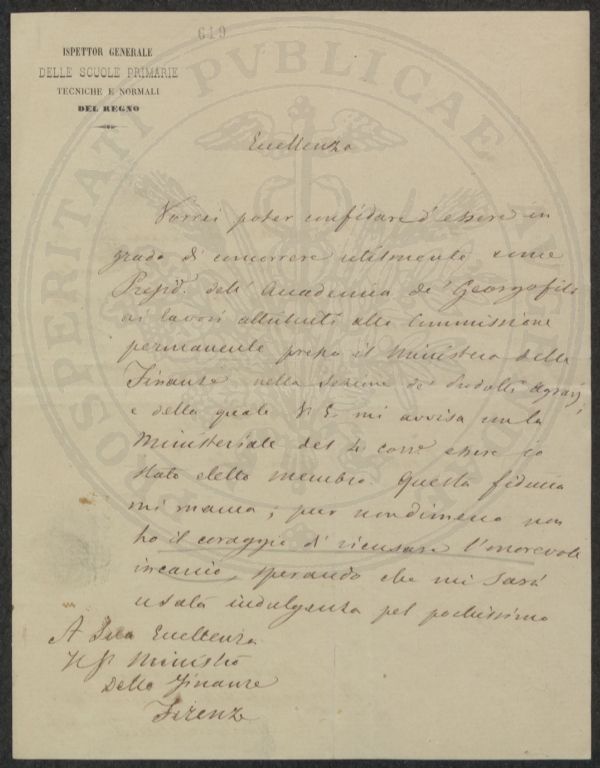 619
ISPETTOR GENERALE
DELLE SCUOLE PRIMARIE
TECNICHE E NORMALI
DEL REGNO
PROSPERITATI PVBLICAE
Eccellenza
Vorrei poter confidare d'essere in
grado di concorrere utilmente come
Presid. dell' Accademia de' Georgofili
ai lavori attribuiti alla Commissione
permanente presso il Ministero delle
Finanze nella sezione de' Prodotti Agrarj,
e della quale V. E. mi avvisa con la
Ministeriale del 4 corr. essere io
stato eletto membro. Questa fiducia
mi manca; pur nondimeno non
ho il coraggio di ricusare l'onorevole
incarico, sperando che mi sarà
usata indulgenza pel pochissimo
A Sua Eccellenza
Il Sr Ministro
Delle Finanze
Firenze